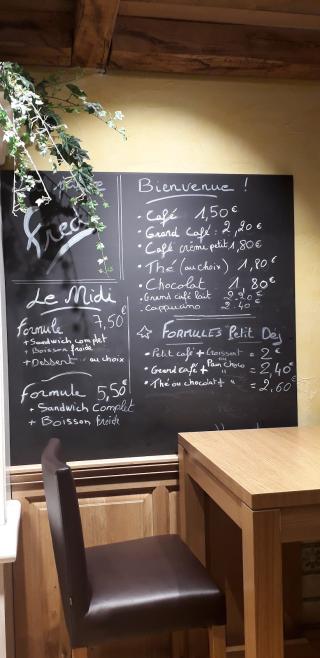 Fred
Le Midi
Formule 7,50€
+ Sandwich complet
+ Boisson froide
+ Dessert au choix
Formule 5,50€
+ Sandwich Complet
+ Boisson froide
Bienvenue !
• Café 1,50€
• Grand Café : 2,20€
• Café crème petit 1,80€
• Thé (au choix) 1,80€
• Chocolat 1.80€
• Grand café lait 2.20€
. cappucino 2.40€
☆ FORMULES Petit Déj
• Petit café + Croissant = 2€
• Grand café + Pain choco = 2,40€
• Thé ou chocolat + " = 2.60€